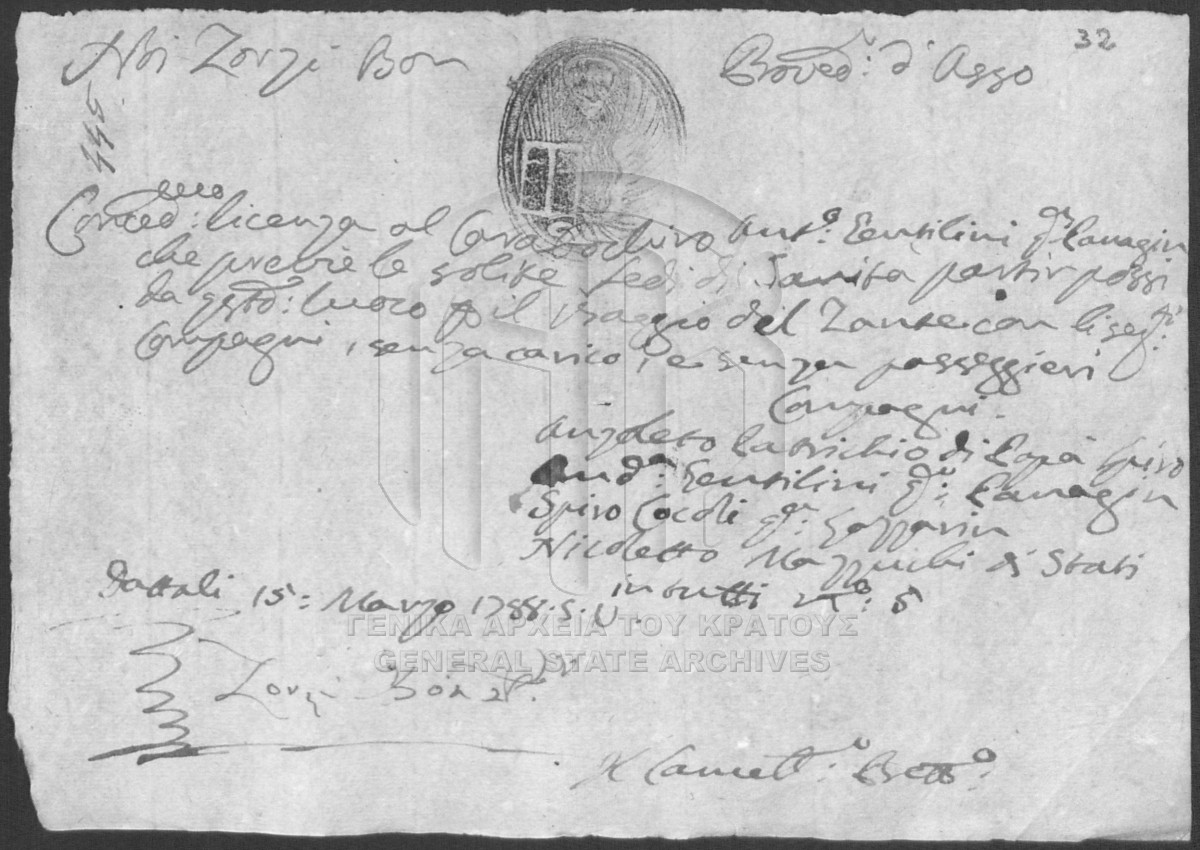 32
Noi Zorzi Bon Proved:r d'Asso
445
Conced:emo licenza al Caravochiro Ant:o Gentilini q:m Panagin
che previe le solite fedi di Sanità partir possi
da q:sto luoco p il viaggio del Zante con li seg:ti
Compagni, senza carico, e senza passeggieri
Compagni.
Anzoletto Catrichio di Papà Spiro
And:a Gentilini q:m Panagin
Spiro Cocoli q:m Gasparin
Nicoletto Mazzuchi di Stati
in tutti n:o 5
Dattali 15: Marzo 1788. S. N.
Zorzi Bon Pr:r
Il Cancell:r Pret:o
ΓΕΝΙΚΑ ΑΡΧΕΙΑ ΤΟΥ ΚΡΑΤΟΥΣ
GENERAL STATE ARCHIVES